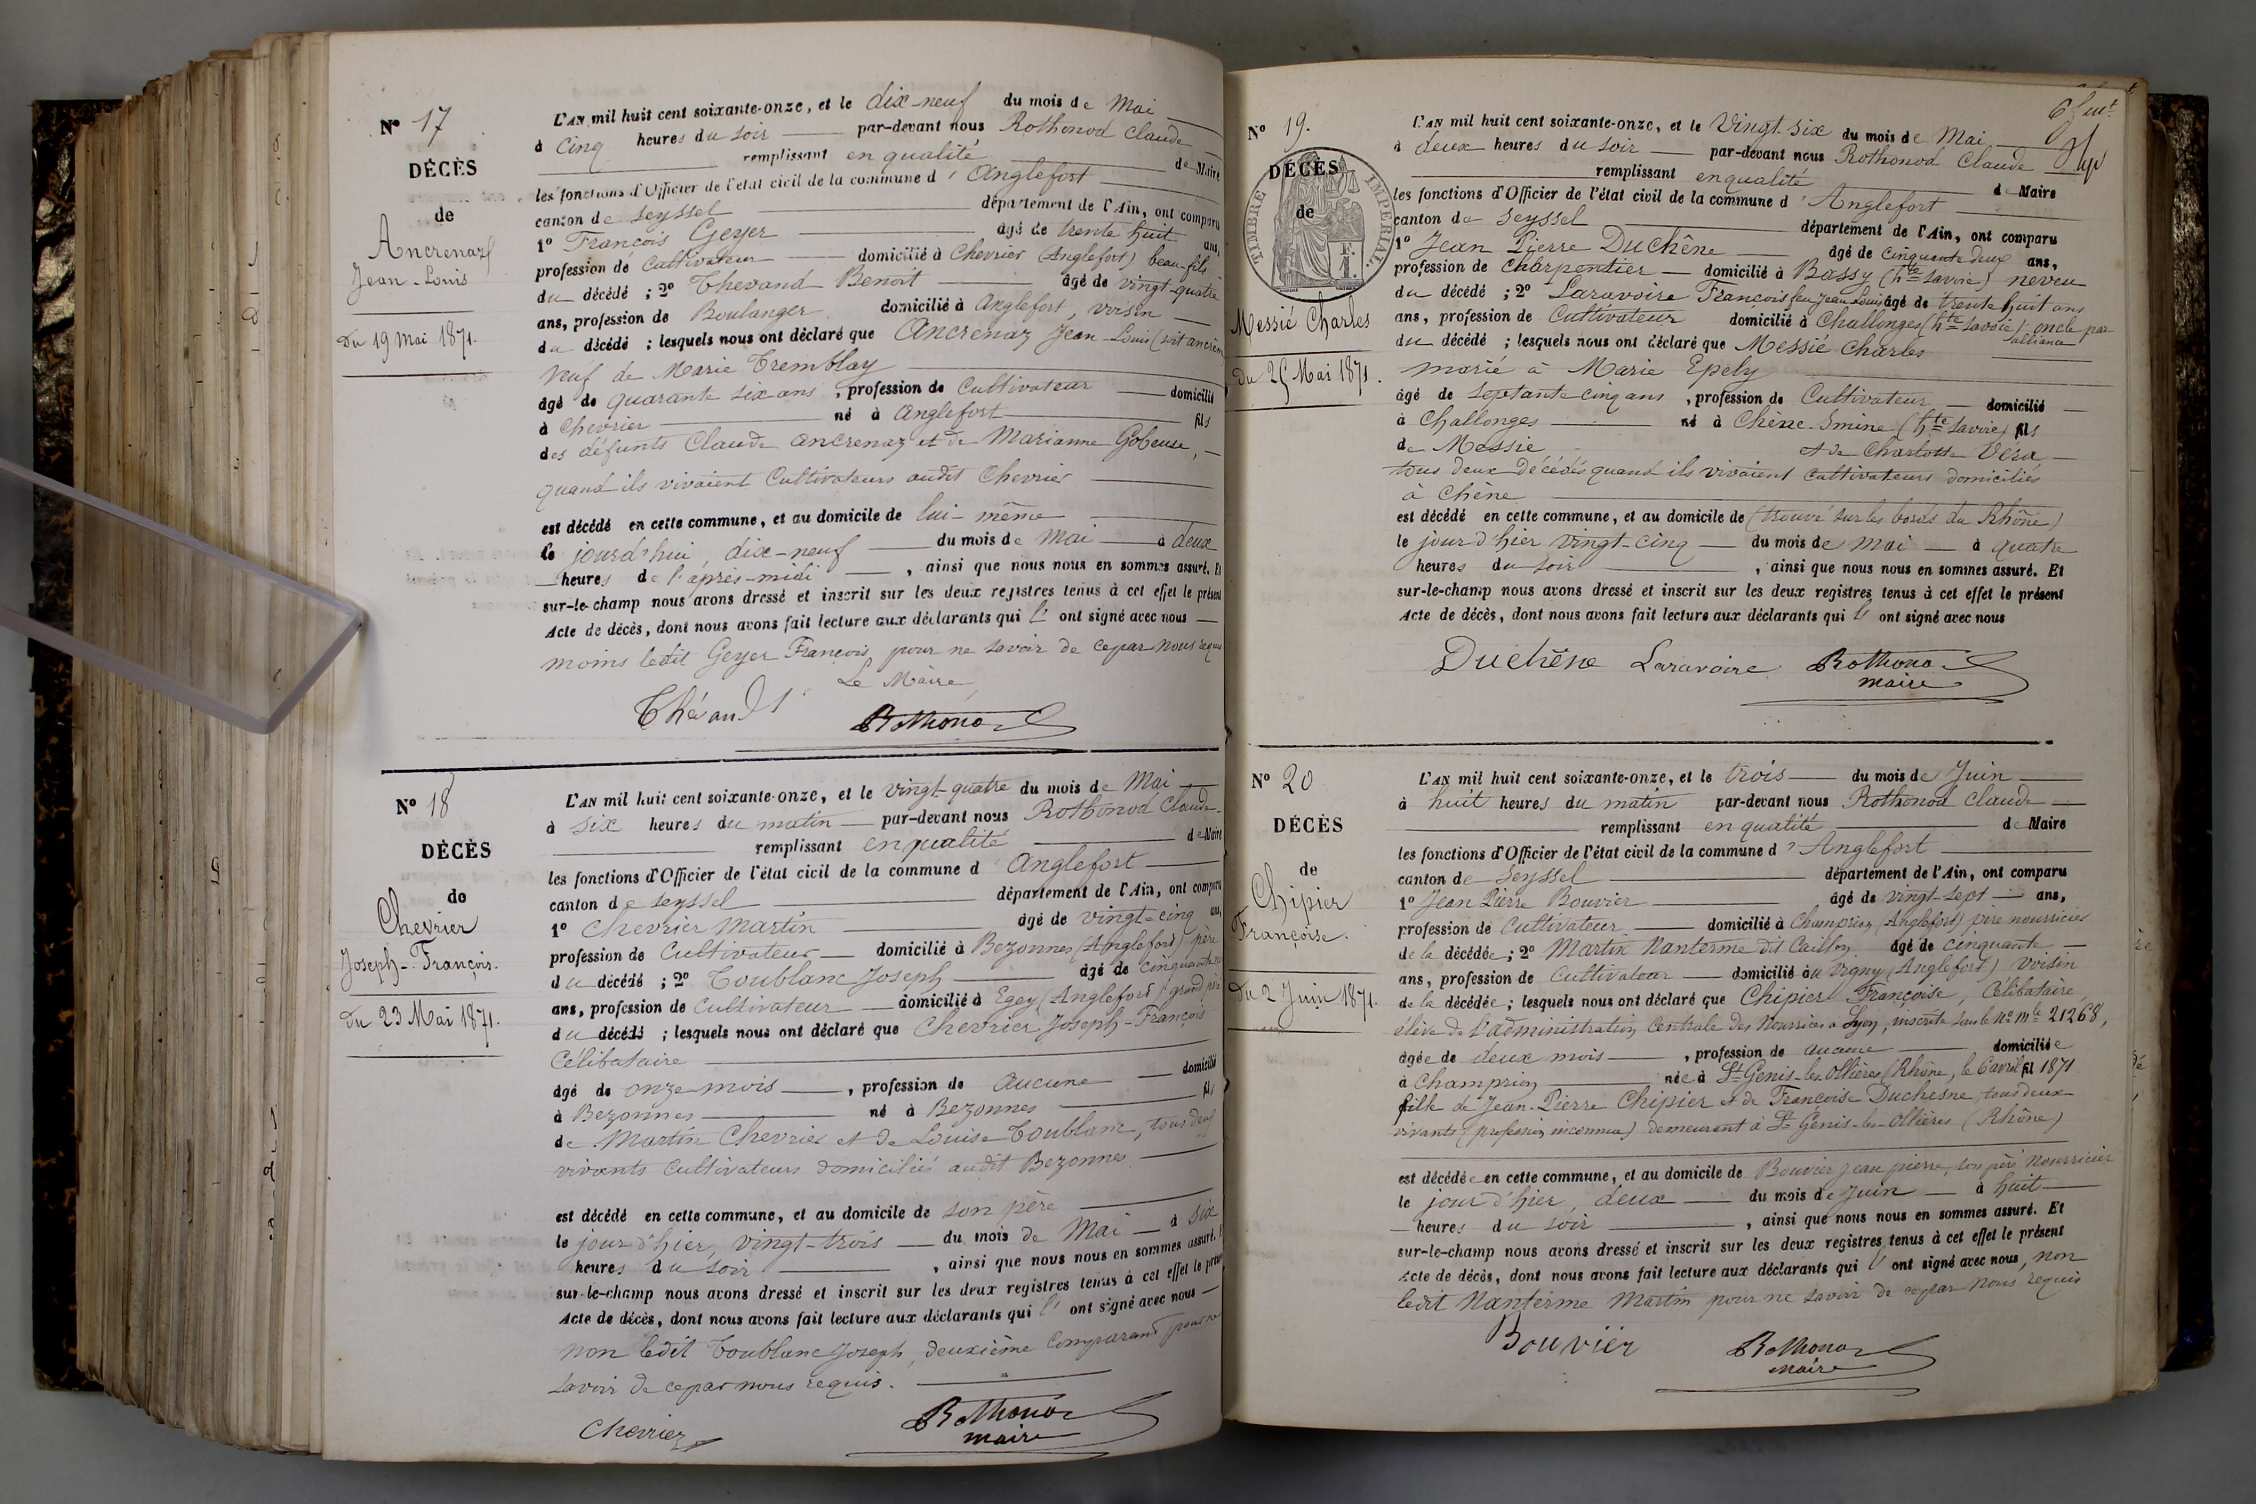 N° 17
DÉCÈS
de
Ancrenaz
Jean-Louis
Du 19 Mai 1871.
L'AN mil huit cent soixante-onze, et le dix-neuf du mois de Mai
à cinq heures du soir par-devant nous Rothonod Claude
remplissant en qualité de Maire
les fonctions d'Officier de l'état civil de la commune d'Anglefort
canton de Seyssel département de l'Ain, ont comparu
1° François Geyer âgé de trente huit ans,
profession de Cultivateur domicilié à Chevrier (Anglefort) beau-fils
du décédé ; 2° Thevand Benoit âgé de vingt-quatre
ans, profession de Boulanger domicilié à Anglefort, voisin
du décédé ; lesquels nous ont déclaré que Ancrenaz Jean-Louis (soit
veuf de Marie Tremblay
âgé de quarante six ans, profession de Cultivateur domicilié
à Chevrier né à Anglefort fils
des défunts Claude Ancrenaz et de Marianne Gobeuse,
quand ils vivaient Cultivateurs audit Chevrier
est décédé en cette commune, et au domicile de lui-même
le jourd'hui dix-neuf du mois de Mai à deux
heures de l'après-midi, ainsi que nous nous en sommes assuré. Et
sur-le-champ nous avons dressé et inscrit sur les deux registres tenus à cet effet le présent
Acte de décès, dont nous avons fait lecture aux déclarants qui l' ont signé avec nous
moins ledit Geyer François, pour ne savoir de ce par nous requis
Le Maire,
Thévand
Rothonod
N° 18
DÉCÈS
de
Chevrier
Joseph-François.
Du 23 Mai 1871.
L'AN mil huit cent soixante-onze, et le vingt-quatre du mois de Mai
à six heures du matin par-devant nous Rothonod Claude
remplissant en qualité de Maire
les fonctions d'Officier de l'état civil de la commune d'Anglefort
canton de Seyssel département de l'Ain, ont comparu
1° Chevrier Martin âgé de vingt-cinq ans,
profession de Cultivateur domicilié à Bezonnes (Anglefort) père
du décédé ; 2° Toublanc Joseph âgé de cinquante
ans, profession de Cultivateur domicilié à Egey (Anglefort) grand père
du décédé ; lesquels nous ont déclaré que Chevrier Joseph-François
Célibataire
âgé de onze mois, profession de aucune domicilié
à Bezonnes né à Bezonnes fils
de Martin Chevrier et de Louise Toublanc, tous deux
vivants cultivateurs domiciliés audit Bezonnes.
est décédé en cette commune, et au domicile de son père
le jour d'hier, vingt-trois du mois de Mai à six
heures du soir, ainsi que nous nous en sommes assuré. Et
sur-le-champ nous avons dressé et inscrit sur les deux registres tenus à cet effet le présent
Acte de décès, dont nous avons fait lecture aux déclarants qui l' ont signé avec nous
non ledit Toublanc Joseph, deuxième comparant pour ne
savoir de ce par nous requis.
Chevrier
Rothonod
maire
N° 19.
DÉCÈS
de
TIMBRE IMPÉRIAL.
Messié Charles
Du 25 Mai 1871.
L'AN mil huit cent soixante-onze, et le Vingt six du mois de Mai
à deux heures du soir par-devant nous Rothonod Claude
remplissant en qualité de Maire
les fonctions d'Officier de l'état civil de la commune d'Anglefort
canton de Seyssel département de l'Ain, ont comparu
1° Jean Pierre Duchêne âgé de cinquante deux ans,
profession de charpentier domicilié à Bassy (hte Savoie) neveu
du décédé ; 2° Laravoire François feu Jean Louis âgé de trente huit ans
ans, profession de Cultivateur domicilié à Challonges (hte Savoie) oncle par alliance
du décédé ; lesquels nous ont déclaré que Messié Charles
marié à Marie Epely
âgé de septante cinq ans, profession de Cultivateur domicilié
à Challonges né à Chène-Smine (hte Savoie) fils
de Messie et de Charlotte Véra
tous deux décédés quand ils vivaient cultivateurs domiciliés
à Chène
est décédé en cette commune, et au domicile de (trouvé sur les bords du Rhône)
le jour d'hier vingt-cinq du mois de Mai à quatre
heures du soir, ainsi que nous nous en sommes assuré. Et
sur-le-champ nous avons dressé et inscrit sur les deux registres tenus à cet effet le présent
Acte de décès, dont nous avons fait lecture aux déclarants qui l' ont signé avec nous
Duchêne Laravoire Rothonod
maire
N° 20
DÉCÈS
de
Chipier
Françoise.
Du 2 Juin 1871.
L'AN mil huit cent soixante-onze, et le trois du mois de Juin
à huit heures du matin par-devant nous Rothonod Claude
remplissant en qualité de Maire
les fonctions d'Officier de l'état civil de la commune d'Anglefort
canton de Seyssel département de l'Ain, ont comparu
1° Jean Pierre Bouvier âgé de vingt-sept ans,
profession de Cultivateur domicilié à Champrion (Anglefort) père nourricier
de la décédée ; 2° Martin Nanterme dit Caillon âgé de cinquante
ans, profession de Cultivateur domicilié à Vigny (Anglefort) voisin
de la décédée ; lesquels nous ont déclaré que Chipier Françoise, Célibataire,
élève de l'administration Centrale des Nourrices à Lyon, inscrite sous le No mle 21268,
âgée de deux mois, profession de aucune domiciliée
à Champrion née à St Genis-les-Ollières (Rhône, le 6 avril 1871
fille de Jean-Pierre Chipier et de Françoise Duchesne, tous deux
vivants (profession inconnue) demeurant à St Genis-les-Ollières (Rhône)
est décédée en cette commune, et au domicile de Bouvier Jean pierre, son père nourricier
le jour d'hier, deux du mois de Juin à huit
heures du soir, ainsi que nous nous en sommes assuré. Et
sur-le-champ nous avons dressé et inscrit sur les deux registres tenus à cet effet le présent
Acte de décès, dont nous avons fait lecture aux déclarants qui l' ont signé avec nous, non
ledit Nanterme Martin pour ne savoir de ce par nous requis
Bouvier Rothonod
maire